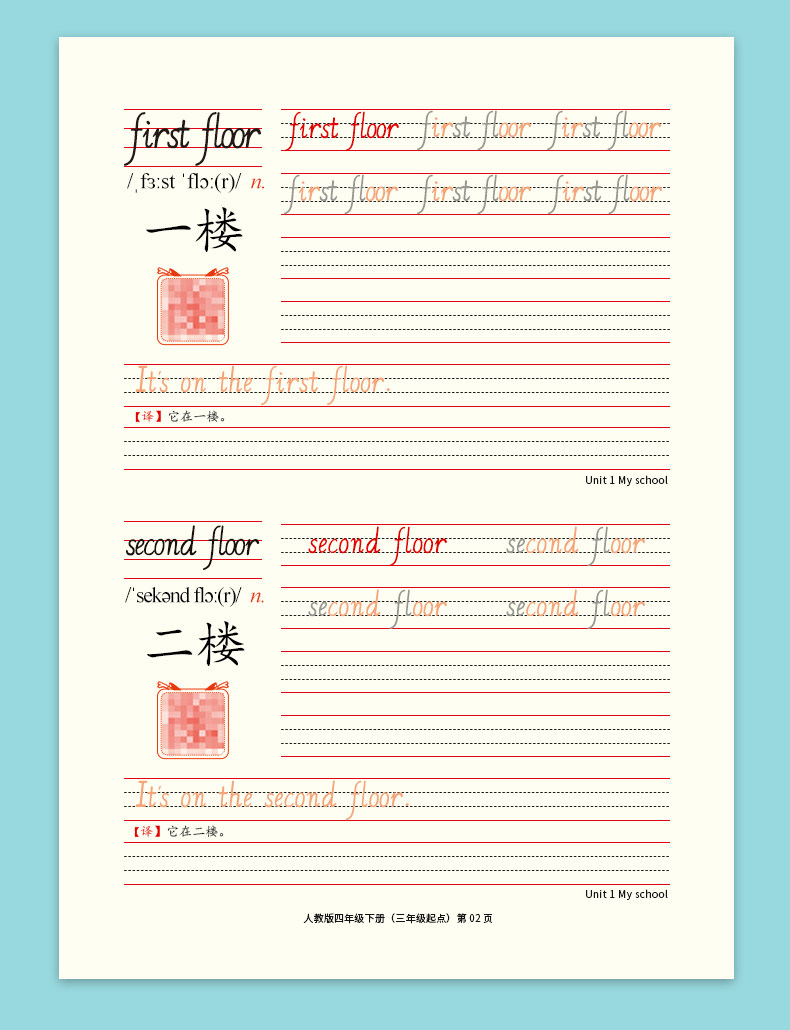 first floor
first floor first floor first floor
/ˌfɜːst ˈflɔː(r)/ n.
first floor first floor first floor
一楼
It's on the first floor.
【译】它在一楼。
Unit 1 My school
second floor
second floor second floor
/ˈsekənd flɔː(r)/ n.
second floor second floor
二楼
It's on the second floor.
【译】它在二楼。
Unit 1 My school
人教版四年级下册（三年级起点）第 02 页